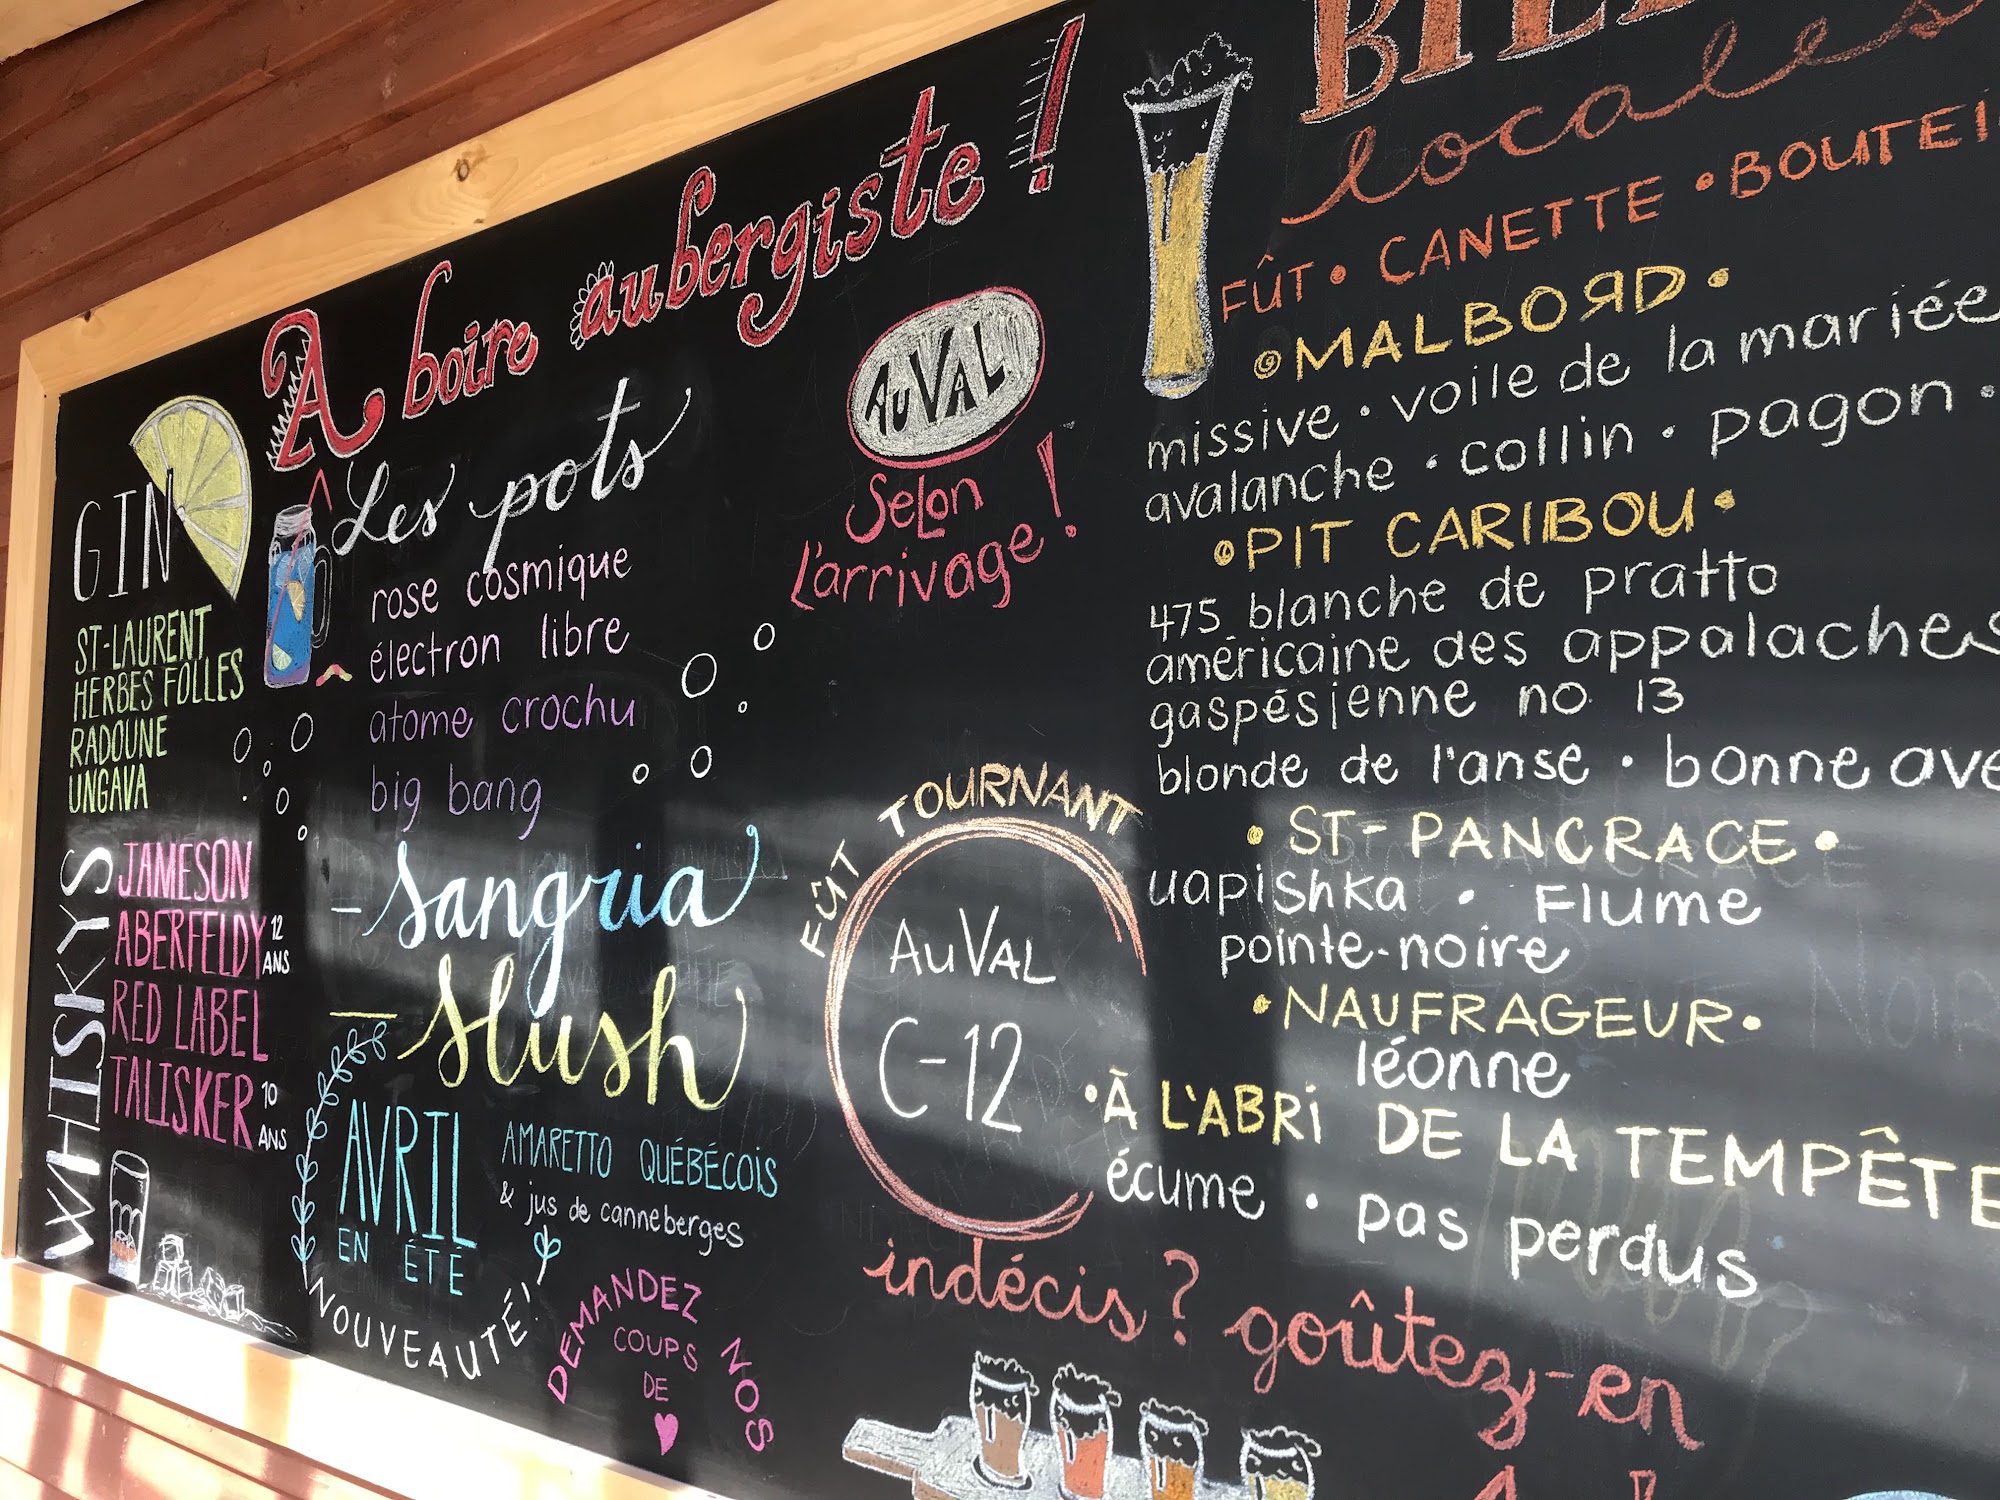 A boire aubergiste !
GIN
ST-LAURENT
HERBES FOLLES
RADOUNE
UNGAVA
WHISKYS
JAMESON
ABERFELDY 12 ANS
RED LABEL
TALISKER 10 ANS
Les pots
rose cosmique
électron libre
atome crochu
big bang
- Sangria
- Slush
AVRIL
EN ÉTÉ
AMARETTO QUÉBÉCOIS
& jus de canneberges
NOUVEAUTÉ!
DEMANDEZ NOS
COUPS
DE
AUVAL
Selon
L'arrivage !
FÛT TOURNANT
AUVAL
C-12
locales
FÛT • CANETTE •
• MALBORD •
missive • voile de la mariée
avalanche • collin • pagon •
• PIT CARIBOU •
475 blanche de pratto
américaine des appalaches
gaspésienne no 13
blonde de l'anse • bonne
• ST-PANCRACE •
uapishka • Flume
pointe-noire
• NAUFRAGEUR •
léonne
• À L'ABRI DE LA TEMPÊTE
écume • pas perdus
indécis ? goûtez-en